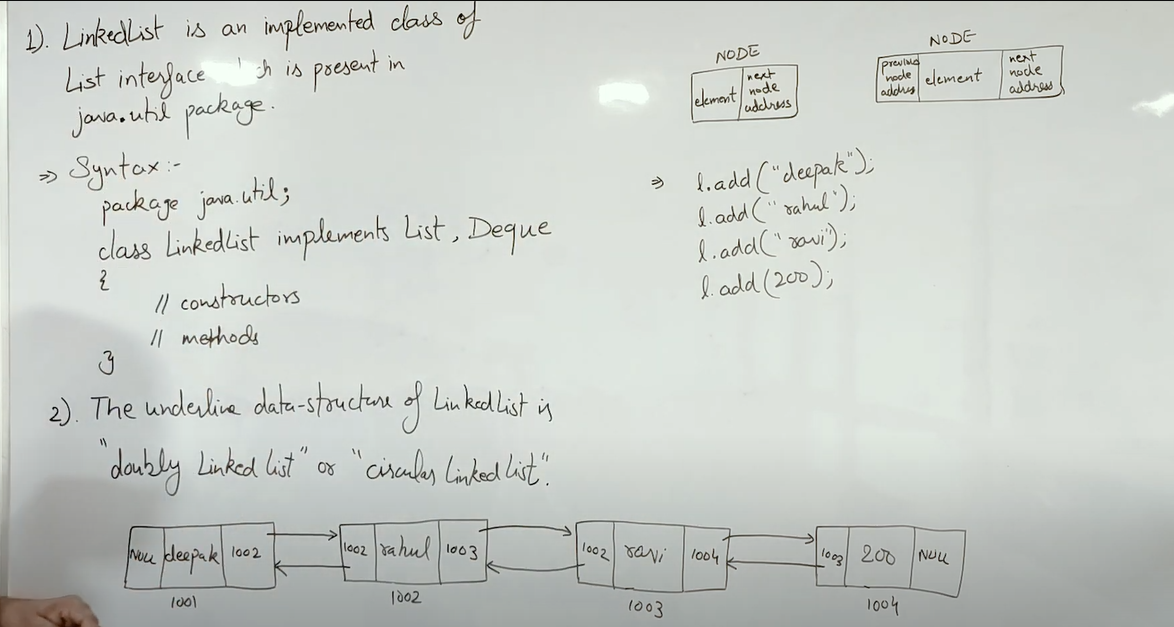 1). LinkedList is an implemented class of
List interface ch is present in
java.util package.
⇒ Syntax :-
package java.util;
class LinkedList implements List, Deque
{
// constructors
// methods
}
2). The underline data-structure of LinkedList is
"doubly Linked list" or "circular Linked List".
NODE
element next node address
NODE
previous node address element next node address
⇒ l.add("deepak");
l.add("rahul");
l.add("ravi");
l.add(200);
NULL deepak 1002
1001
1002 rahul 1003
1002
1002 ravi 1004
1003
1003 200 NULL
1004